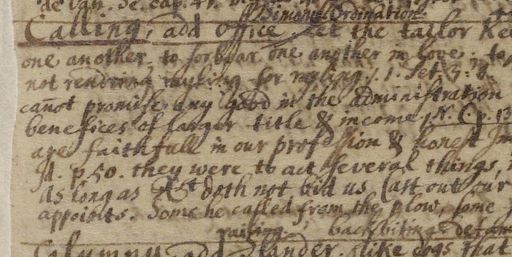 Simonie. Ordination
Calling, add Office. Let the taylor kee
one another, to forbear one another in love. to
not rendring rayling for rayling, 1. Pet. 3. 8.
cañot promise any good in the administration
benefices of larger title & income, N. C. p. 13
are faithfull in our profession & honest Im
Id. p. 50. they were to act several things,
As long as doth not bid us Cast out our
appoints. Some he called from the plow, some
railing. backbiting defam
Calumny, add Slander. like dogs that